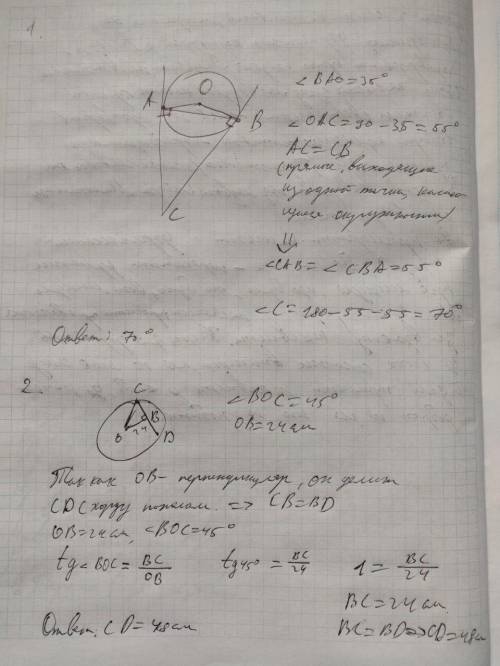 1
O
A
B
C
∠BAO=35°
∠OAC=90-35=55°
AC=CB
(прямые, выходящие
из одной точки, касаю-
щиеся окружности)
⇓
∠CAB=∠CBA=55°
∠C=180-55-55=70°
Ответ: 70°
2.
C
B
O
24
D
∠BOC=45°
OB=24см
Так как OB- перпендикуляр, он делит
CD(хорду пополам. => CB=BD
OB=24см, ∠BOC=45°
tg∠BOC=BC/OB tg45°=BC/24 1=BC/24
BC=24см.
Ответ. CD=48см BC=BD=>CD=48см